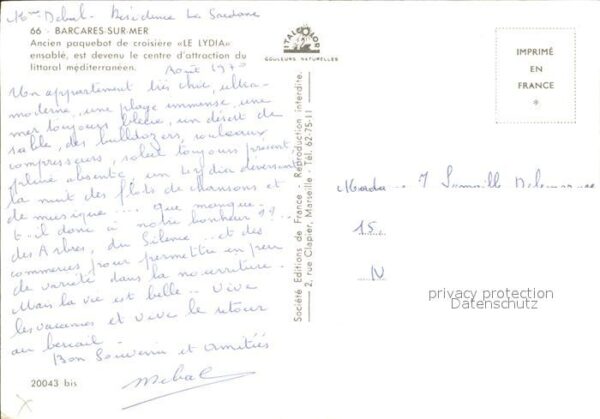 Mme Debul. Résidence La Sardane
66 - BARCARES-SUR-MER
Ancien paquebot de croisière «LE LYDIA»
ensablé, est devenu le centre d'attraction du
littoral méditerranéen.
Août 1970
Un appartement très chic, ultra-
moderne, une plage immense, une
mer toujours bleue, un désert de
sable, des bulldozers, rouleaux
compresseurs, soleil toujours présent,
pluie absente, un Lydia déversant
la nuit des flots de chansons et
de musique .... que manque-
t-il donc à notre bonheur ??..
des Arbres, du Silence ... et des
commerces pour permettre un peu
de variété dans la nourriture.
Mais la vie est belle - Vive
les vacances et vive le retour
au bercail -
Bon Souvenir et Amitiés
20043 bis
ITALCOLOR
COULEURS NATURELLES
Société Editions de France - Reproduction interdite.
2, rue Clapier, Marseille - Tél. 62-75-11
IMPRIMÉ
EN
FRANCE
*
15,
N
privacy protection
Datenschutz